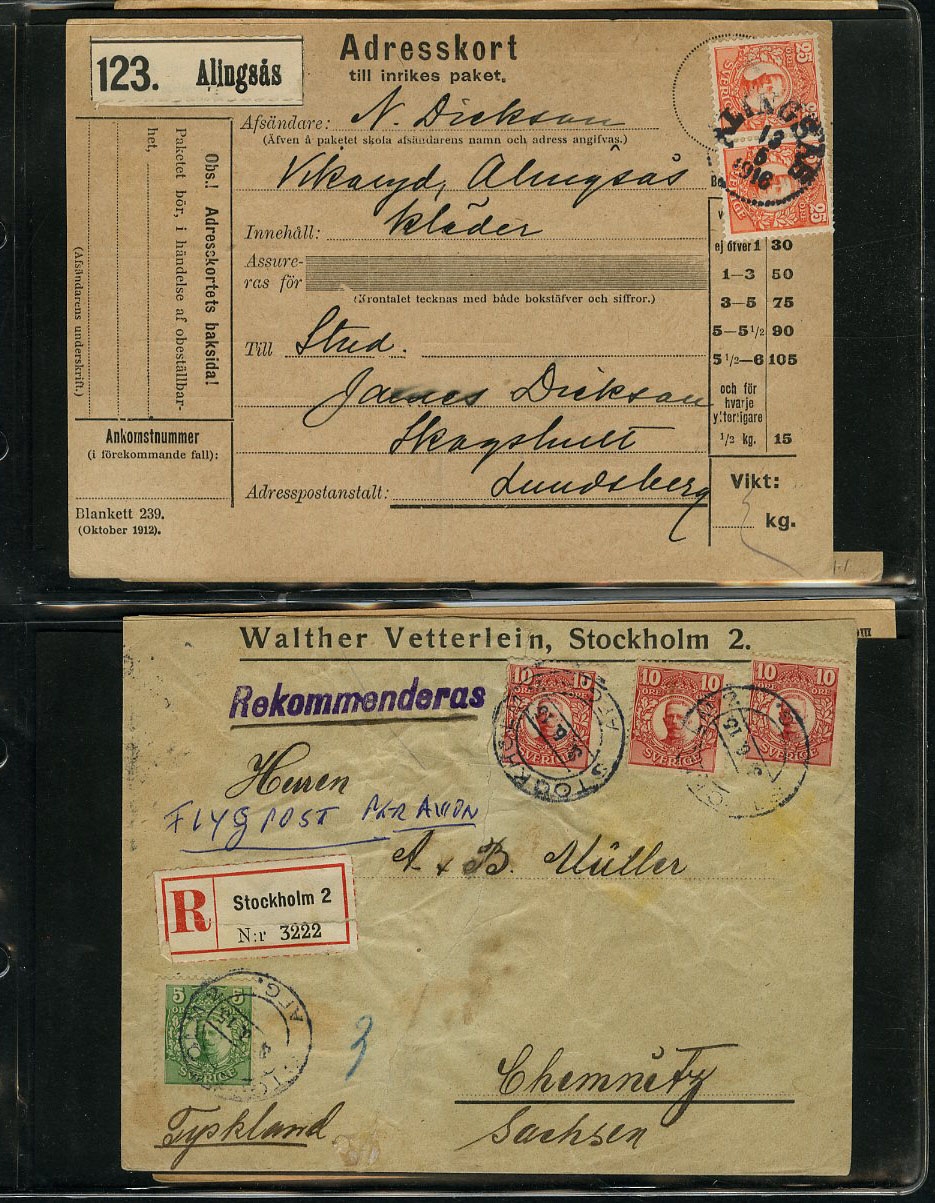 Adresskort
till inrikes paket.
123. Alingsås
25 25
SVERIGE
ALINGSÅS
13
6
1916
25
SVERIGE
Afsändare: N. Dickson
(Äfven å paketet skola afsändarens namn och adress angifvas.)
Alingsås
Innehåll: kläder
Assure-
ras för
(Krontalet tecknas med både bokstäfver och siffror.)
Till Stud.
James Dickson
Skogshult
Adresspostanstalt: Lundsberg
Obs.! Adresskortets baksida!
Paketet bör, i händelse af obeställbar-
het,
(Afsändarens underskrift.)
Ankomstnummer
(i förekommande fall):
Blankett 239.
(Oktober 1912).
ej öfver 1 30
1—3 50
3—5 75
5—5 1/2 90
5 1/2—6 105
och för
hvarje
ytterligare
1/2 kg. 15
Vikt:
kg.
Walther Vetterlein, Stockholm 2.
Rekommenderas
10 10
ÖRE
SVERIGE
10 10
ÖRE
SVERIGE
10 10
ÖRE
SVERIGE
STOCKHOLM
AFG.
Herren
FLYGPOST PAR AVION
A & B. Müller
R Stockholm 2
N:r 3222
5 5
SVERIGE
AFG.
3
Chemnitz
Sachsen
Tyskland